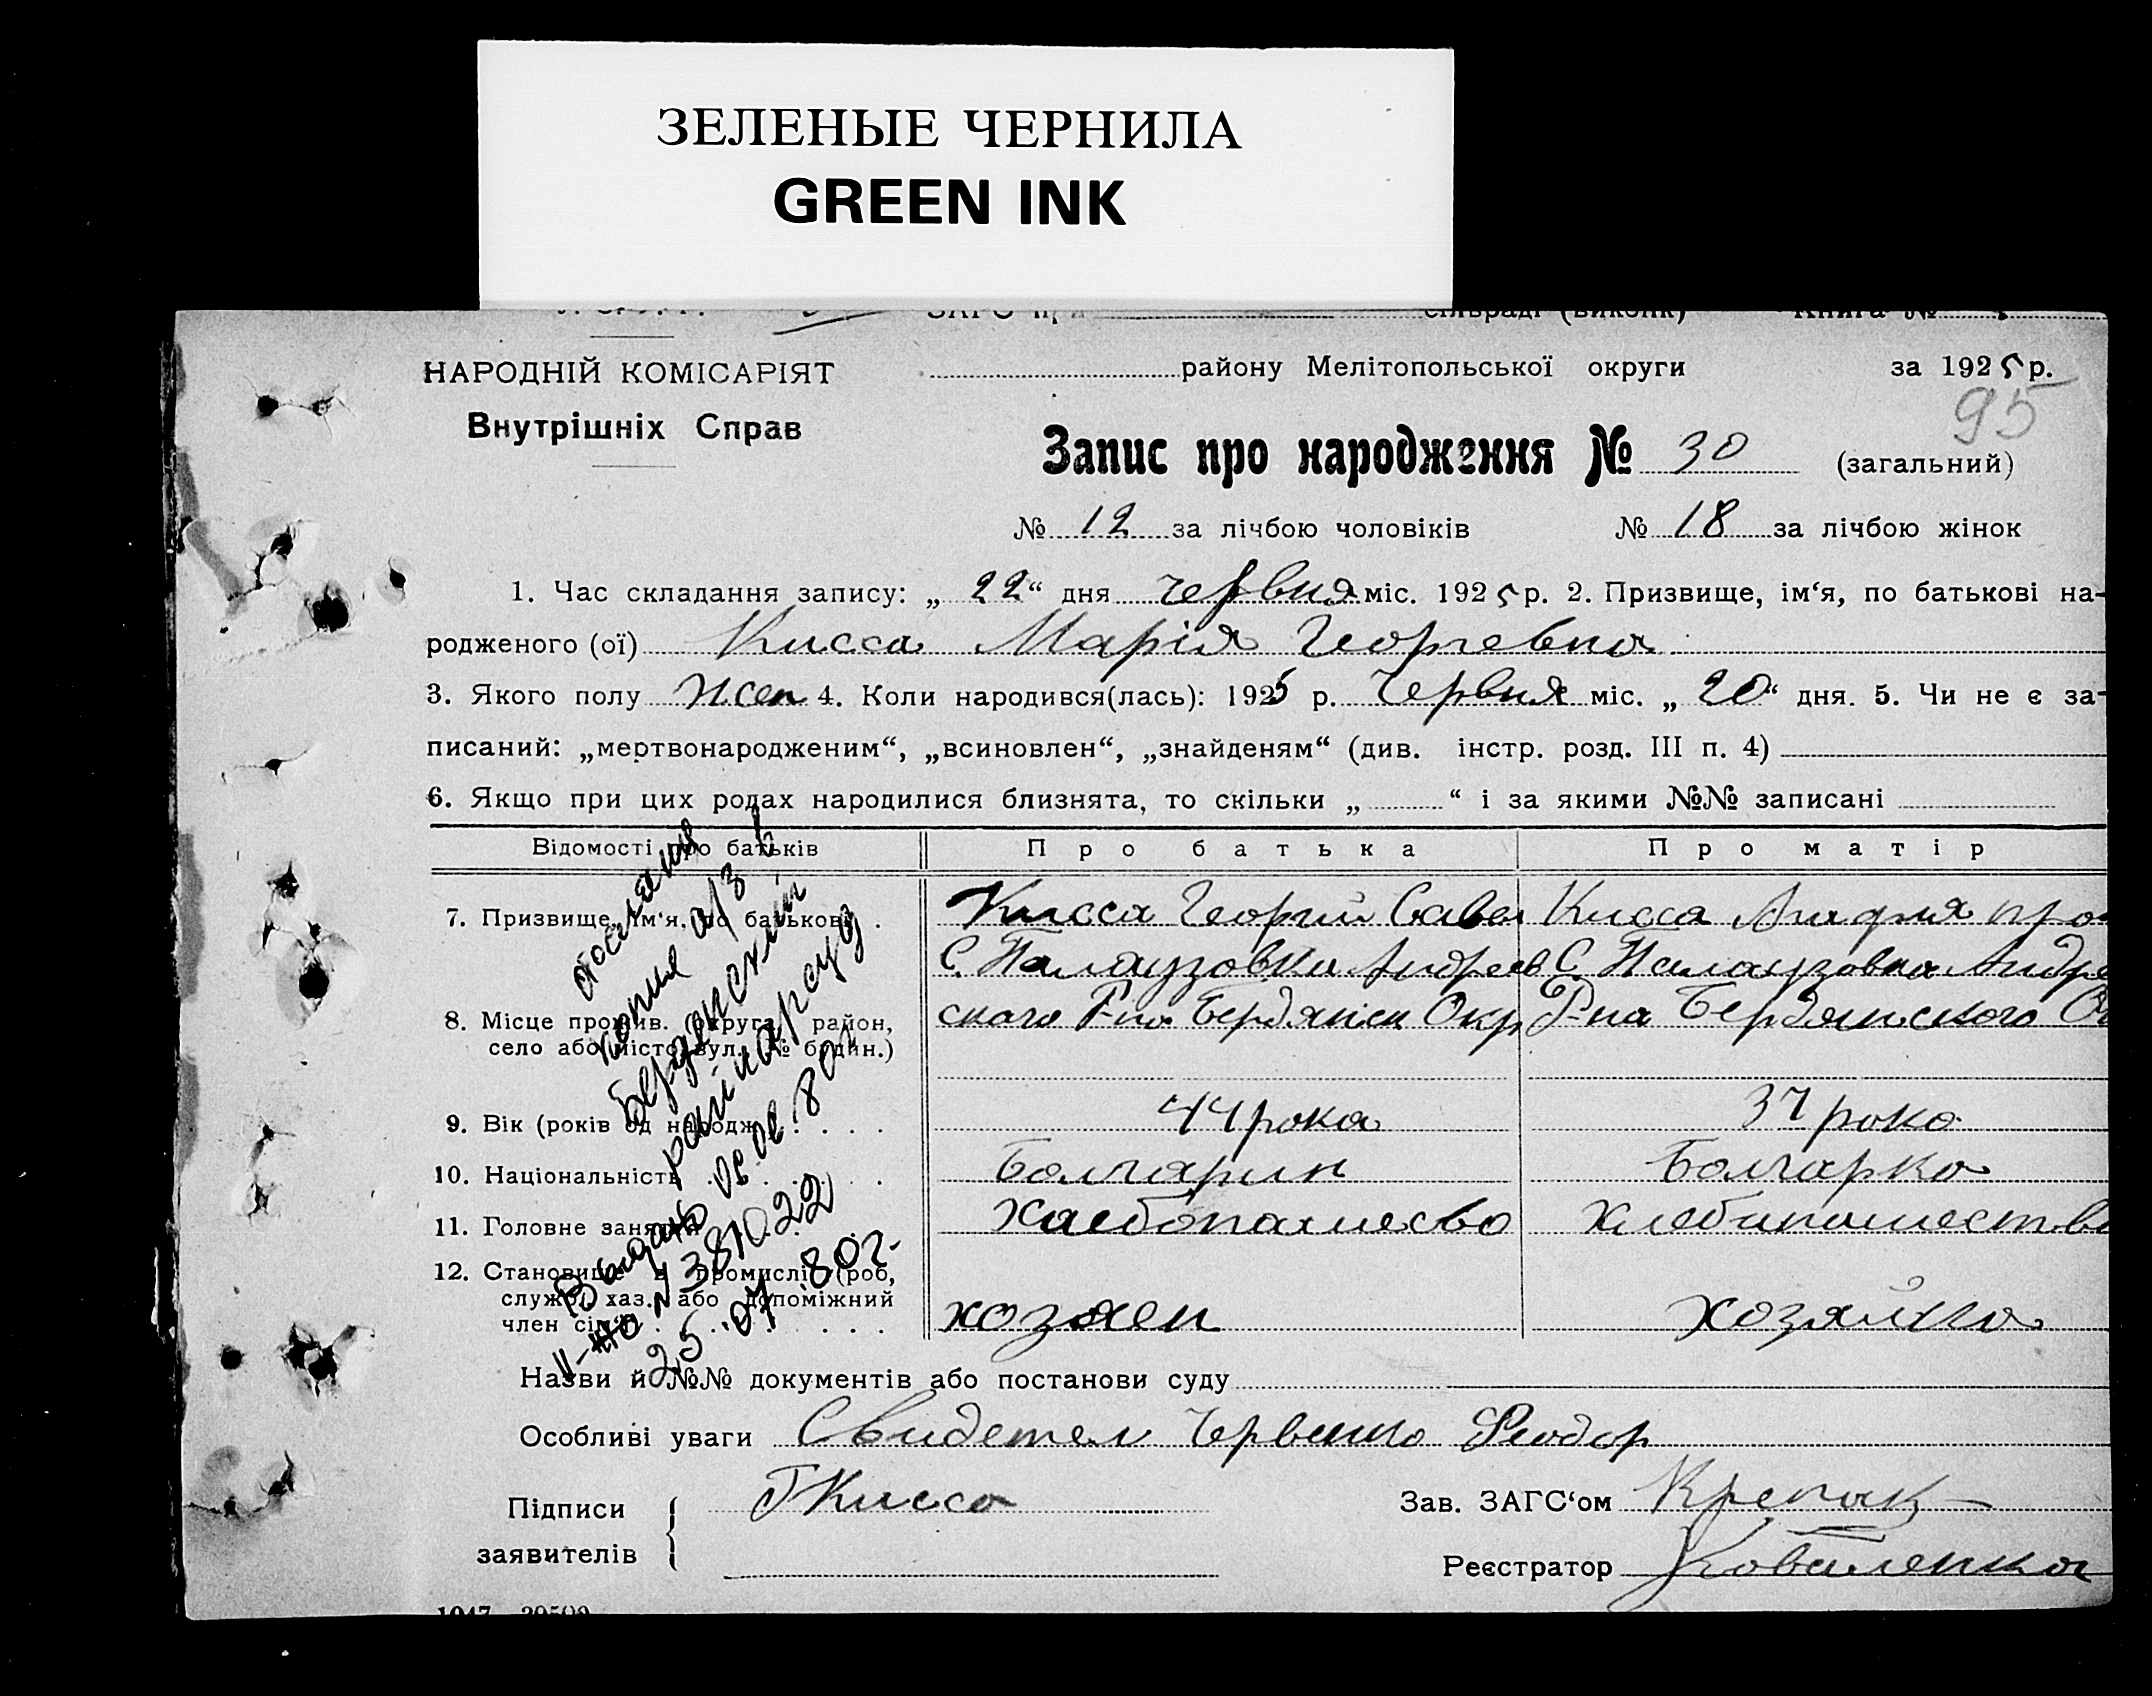 ЗЕЛЕНЫЕ ЧЕРНИЛА
GREEN INK
НАРОДНІЙ КОМІСАРІЯТ
Внутрішніх Справ
району Мелітопольської округи за 1925 р.
95
Запис про народження № 30 (загальний)
№ 12 за лічбою чоловіків № 18 за лічбою жінок
1. Час складання запису: „ 22 “ дня червня міс. 1925 р. 2. Призвище, ім‘я, по батькові на-
родженого (ої) Кисса Марія Георгевна
3. Якого полу жен 4. Коли народився(лась): 1925 р. Червня міс. „ 20 “ дня. 5. Чи не є за-
писаний: „мертвонародженим“, „всиновлен“, „знайденям“ (див. інстр. розд. III п. 4)
6. Якщо при цих родах народилися близнята, то скільки „ “ і за якими №№ записані
Відомості про батьків Про батька Про матір
7. Призвище, ім‘я, по батькові Кисса Георгий Савел Кисса
С. Палаузовки Андреев С. Палаузовка Андре
8. Місце прожив. (округа, район, ского Р-на Бердянск Окр Р-на Бердянского
село або місто, вул. № будин.)
9. Вік (років од народж. 44 рока 37 рока
10. Національність Болгарин Болгарка
11. Головне заняття Хлебопашесво Хлебипашество
12. Становище в промислі (роб,
служб, хаз. або допоміжний
член сім‘ї) хозяен хозяйка
копия а/з в
Бердянский
райнарсуд
Выдано
II-жо № 381022
25.07.80г.
Назви й №№ документів або постанови суду
Особливі уваги Свидетел Червенко Феодор
Підписи
заявителів
Г Кисса
Зав. ЗАГС‘ом
Реєстратор Коваленко